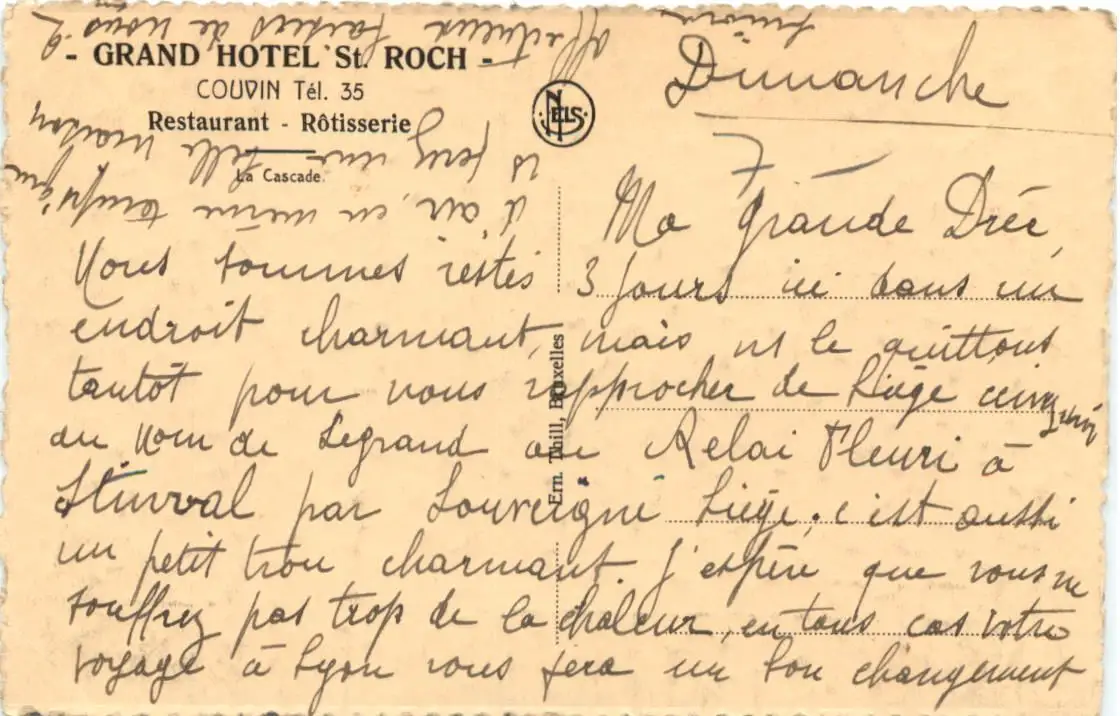 - GRAND HOTEL St. ROCH -
COUVIN Tél. 35
Restaurant - Rôtisserie
La Cascade.
NELS
Ern. Thill, Bruxelles
Dimanche
Ma grande Drée,
Nous sommes restés 3 jours ici dans un
endroit charmant, mais ns le quittons
tantôt pour nous rapprocher de Liège
au nom de Legrand au Relai Fleuri à
par Louveigné Liège. c'est aussi
un petit trou charmant. J'espère que vous ne
souffrez pas trop de la chaleur, en tous cas votre
voyage à Lyon vous fera un bon changement
d'air, en même temps que
telle maison
affectueux baisers de nous 2